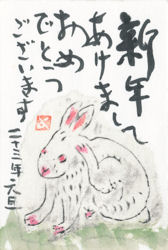 新年
あけまして
おめ
でとう
ございます
二十三年 元旦